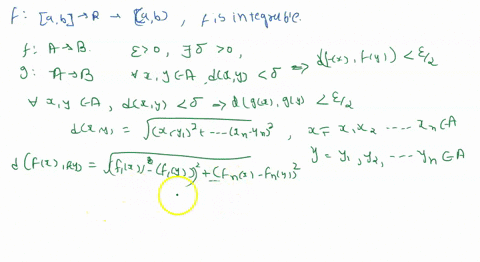 f: [a,b] → R → [a,b) , f is integrable.
f: A → B. ε>0, ∃ δ>0,
g: A → B ∀ x, y ∈ A, d(x,y) < δ ⇒ d(f(x), f(y)) < ε/2
∀ x, y ∈ A, d(x,y) < δ ⇒ d(g(x), g(y)) < ε/2
d(x,y) = √(x₁-y₁)² + ---- (xₙ-yₙ)² , x = x₁, x₂ ---- xₙ ∈ A
y = y₁, y₂, --- yₙ ∈ A
d(f(x), = √(f₁(x) - (f₁(y))² + (fₙ(x) - fₙ(y))²